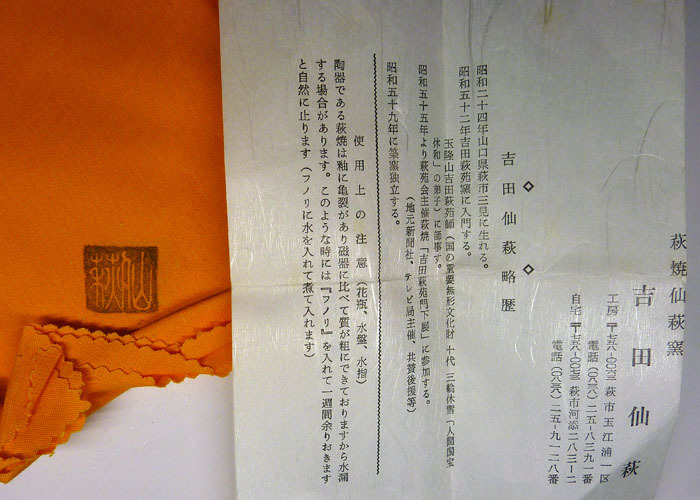 萩焼仙萩窯
吉田仙萩
工房 〒七五八-〇〇六三 萩市玉江浦一区
電話(〇八三八)二五-八三九一番
自宅 〒七五八-〇〇六三 萩市河添二八三-二
電話(〇八三八)二五-九一二八番
吉田仙萩略歴
昭和二十四年山口県萩市三見に生れる。
昭和五十二年吉田萩苑窯に入門する。
玉隆山吉田萩苑師(国の重要無形文化財 十代 三輪休雪「人間国宝
休和」の弟子)に師事す。
昭和五十五年より萩苑会主催萩焼「吉田萩苑門下展」に参加する。
(地元新聞社、テレビ局主催、共賛後援等)
昭和五十九年に築窯独立する。
使用上の注意(花瓶、水盤、水指)
陶器である萩焼は釉に亀裂があり磁器に比べて質が粗にできておりますから水漏
する場合があります。このような時には『フノリ』を入れて一週間余りおきます
と自然に止ります(フノリに水を入れて煮て入れます)
仙萩